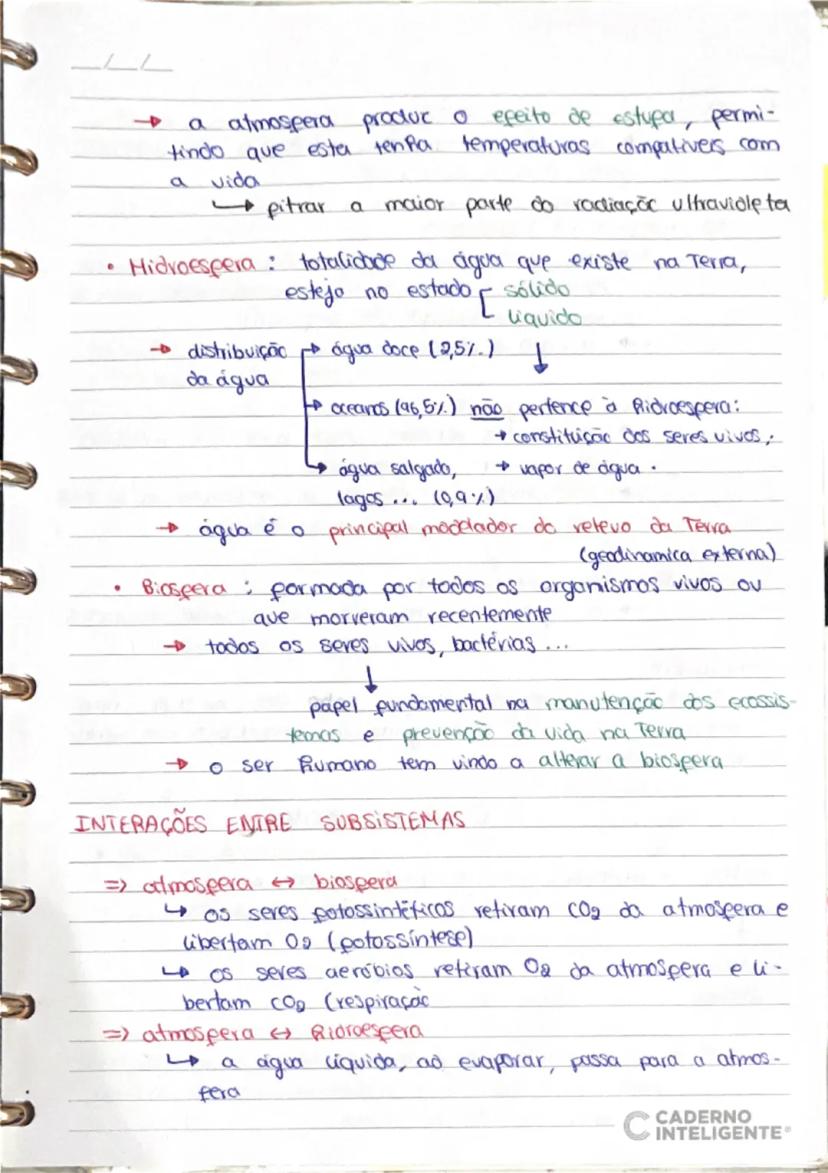 __/__/__
→ a atmosfera produz o efeito de estufa, permi-
tindo que esta tenha temperaturas compatíveis com
a vida
↳ fitrar a maior parte da radiação ultravioleta
• Hidroesfera : totalidade da água que existe na Terra,
esteja no estado sólido
líquido
→ distribuição → água doce (2,5%) ↓
da água
→ oceanos (96,5%) não pertence à hidroesfera:
→ constituição dos seres vivos;
→ água salgada, → vapor de água.
lagos ... (0,9%)
→ água é o principal modelador do relevo da Terra
(geodinamica externa)
• Biosfera : formada por todos os organismos vivos ou
que morreram recentemente
→ todos os seres vivos, bactérias ...
↓
papel fundamental na manutenção dos ecossis-
temas e prevenção da vida na Terra
→ o ser humano tem vindo a alterar a biosfera
INTERAÇÕES ENTRE SUBSISTEMAS
=> atmosfera ↔ biosfera
↳ os seres fotossintéticos retiram CO2 da atmosfera e
libertam O2 (fotossíntese)
↳ os seres aeróbios retiram O2 da atmosfera e li-
bertam CO2 (respiração
=> atmosfera ↔ hidroesfera
↳ a água líquida, ao evaporar, passa para a atmos-
fera
CADERNO
INTELIGENTE®